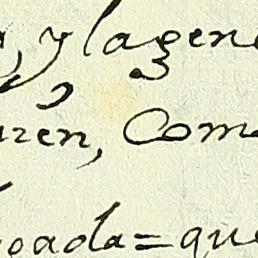 , y lagene
ren, Com
oada=que